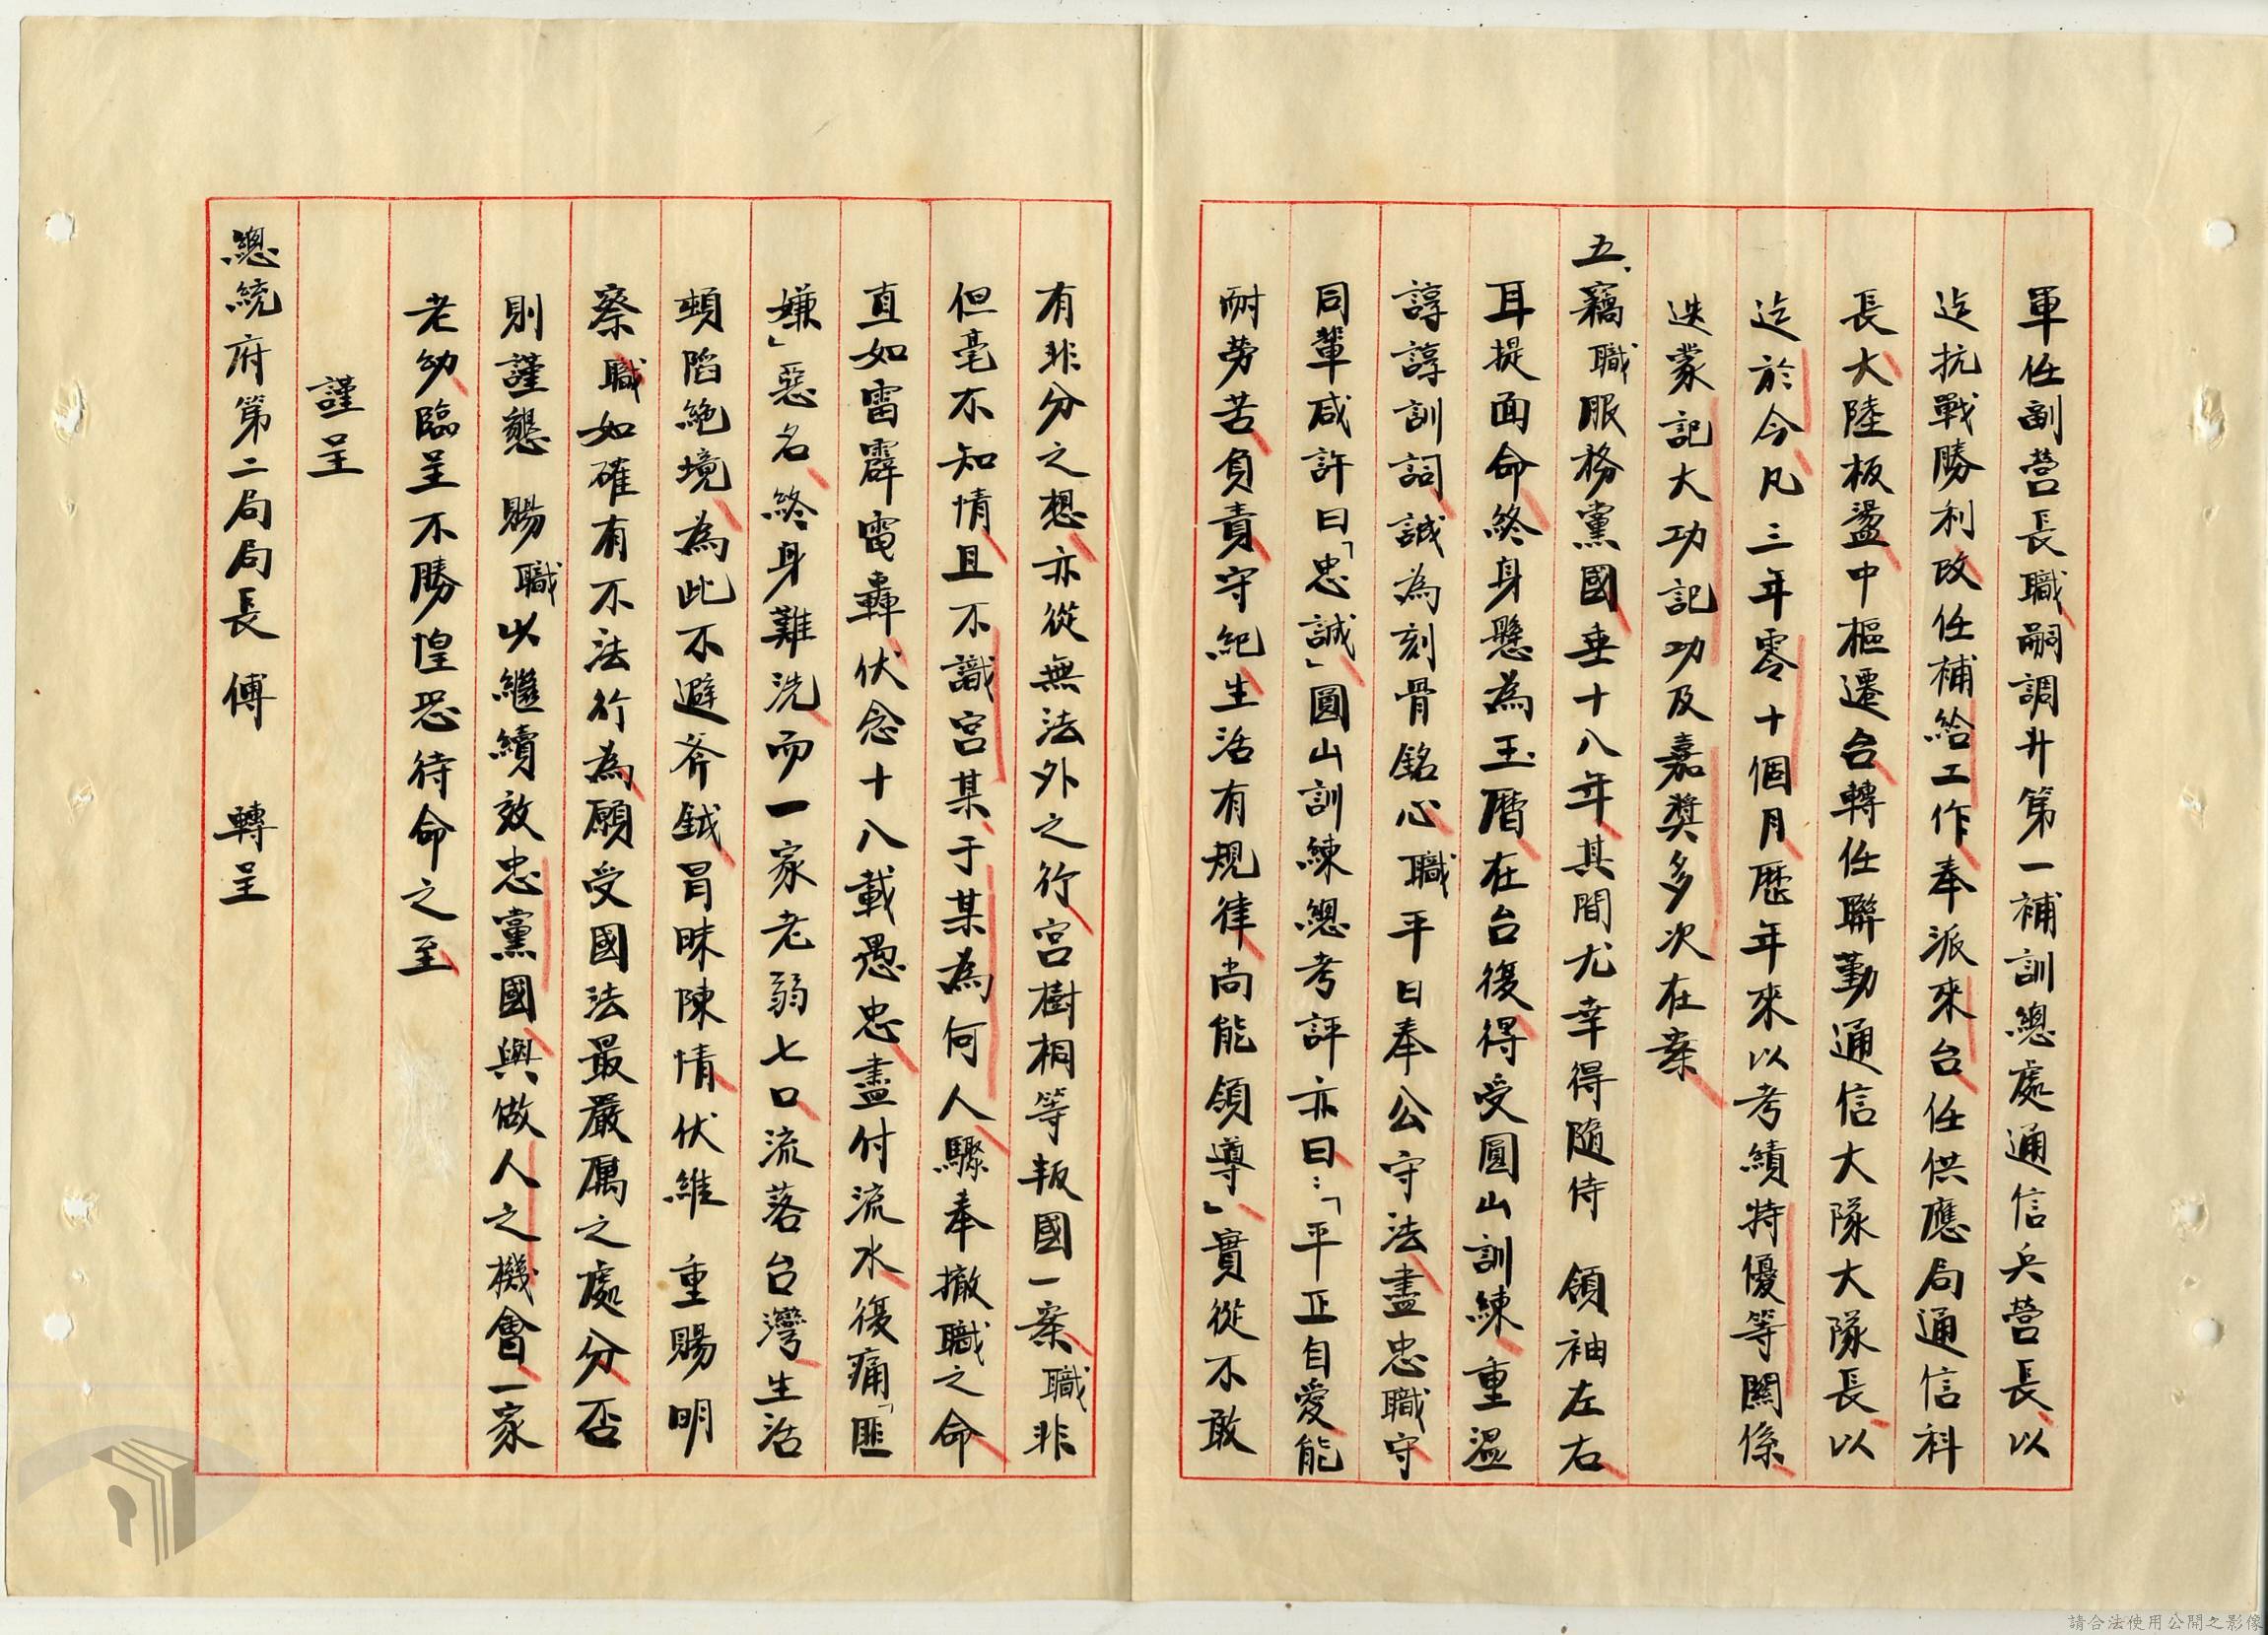 軍任副營長職嗣調升第一補訓總處通信兵營長以
迄抗戰勝利改任補給工作奉派來台任供應局通信科
長大陸板盪中樞遷台轉任聯勤通信大隊大隊長以
迄於今凡三年零十個月歷年來以考績特優等關係
迭蒙記大功記功及嘉獎多次在案
五、竊職服務黨國垂十八年其間尤幸得隨侍 領袖左右
耳提面命終身懸為玉曆在台復得受圓山訓練重溫
諄諄訓詞誠為刻骨銘心職平日奉公守法盡忠職守
同輩咸許曰「忠誠」圓山訓練總考評亦曰：「平正自愛能
耐勞苦負責守紀生活有規律尚能領導」實從不敢
有非分之想亦從無法外之行宮樹桐等叛國一案職非
但毫不知情且不識宮某于某為何人驟奉撤職之命
直如雷霹電轟伏念十八載愚忠盡付流水復痛「匪
嫌」惡名終身難洗而一家老弱七口流落台灣生活
頓陷絕境為此不避斧鉞冒昧陳情伏維 重賜明
察職如確有不法行為願受國法最嚴厲之處分否
則謹懇 賜職以繼續效忠黨國與做人之機會一家
老幼臨呈不勝惶恐待命之至
謹呈
總統府第二局局長傅 轉呈
請合法使用公開之影像